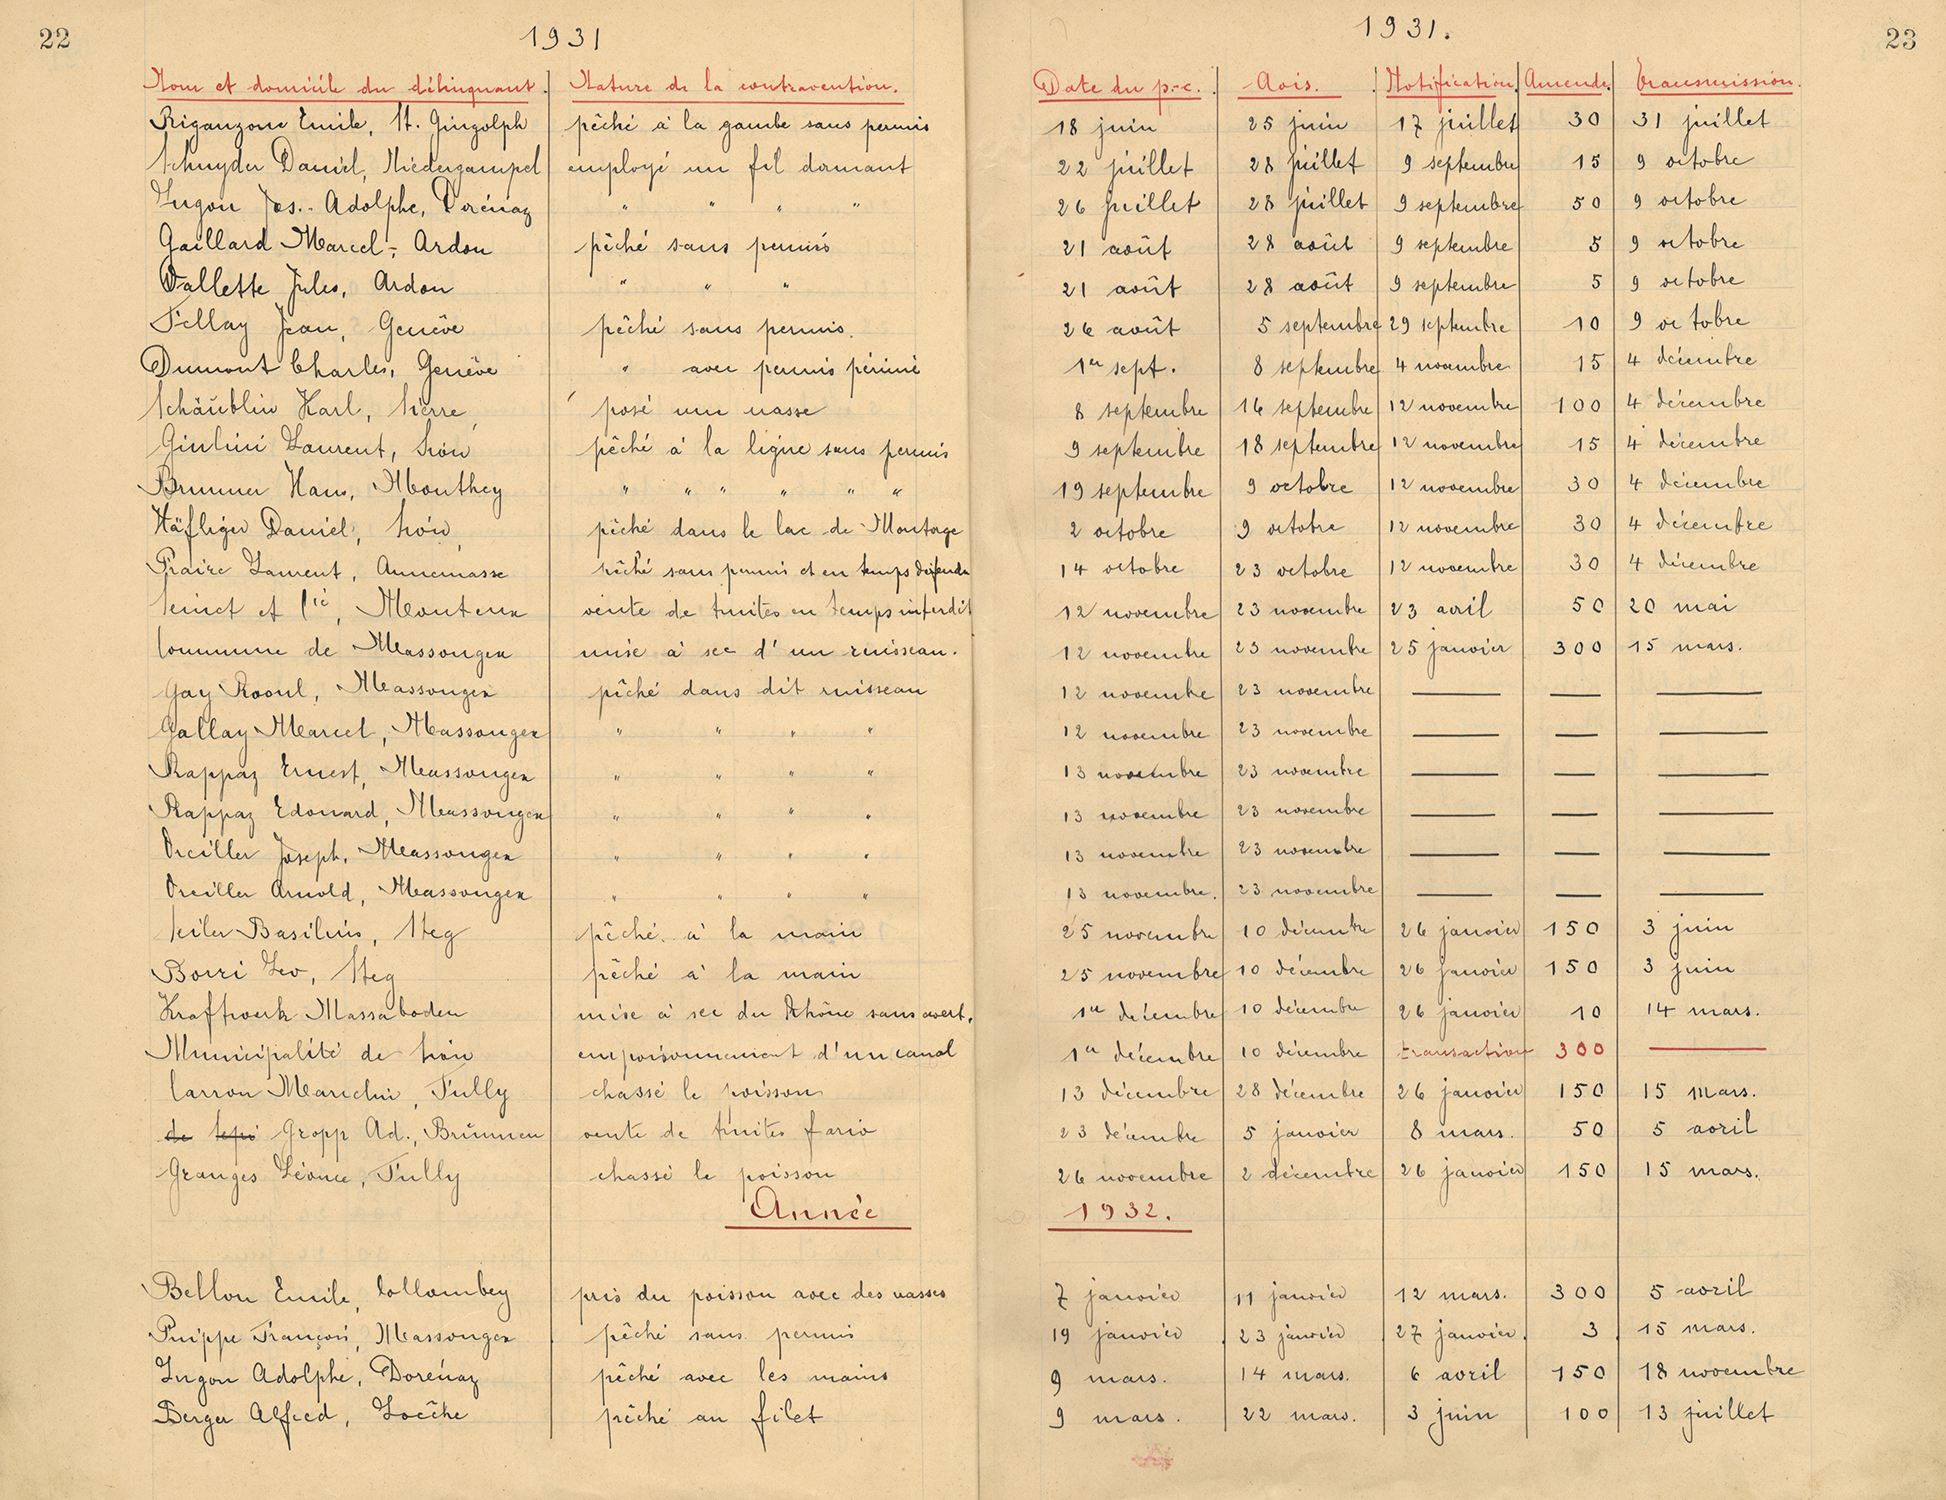 22
1931
Nom et domicile du délinquant. Nature de la contravention.
Riganzone Emile, St. Gingolph pêché à la gambe sans permis
Schnyder Daniel, Niedergampel employé un fil dormant
Jugon Jos.- Adolphe, Dorénaz " " " "
Gaillard Marcel, Ardon pêché sans permis
Vallette Jules, Ardon " " "
Fellay Jean, Genève pêché sans permis.
Dumont Charles, Genève " avec permis périmé
Schäublin Karl, Sierre, posé une nasse
Giulini Laurent, Sion pêché à la ligne sans permis
Brunner Hans, Monthey " " " " " "
Häfliger Daniel, Sion, pêché dans le lac de Montorge
Praire Laurent, Annemasse pêché sans permis et en temps défendu
Seinet et Cie, Montreux vente de truites en temps interdit
Commune de Massongex mise à sec d'un ruisseau.
Gay Raoul, Massongex pêché dans dit ruisseau
Gallay Marcel, Massongex " " " "
Rappaz Ernest, Massongex " " " "
Rappaz Edouard, Massongex " " " "
Oreiller Joseph, Massongex " " " "
Oreiller Arnold, Massongex " " " "
Seiler Basilius, Steg pêché à la main
Borri Leo, Steg pêché à la main
Kraftwerk Massaboden mise à sec du Rhône sans avert.
Municipalité de Sion empoisonnement d'un canal
Carron Marichi, Fully chassé le poisson
de Gropp Ad., Brünnen vente de truites fario
Granges Léonce, Fully chassé le poisson
Année
Bellon Emile, Collombey pris du poisson avec des nasses
Puippe François, Massongex pêché sans permis
Jugon Adolphe, Dorénaz pêché avec les mains
Berger Alfred, Loèche pêché au filet
23
1931.
Date du p.-v. Avis. Notification Amende. Transmission.
18 juin 25 juin 17 juillet 30 31 juillet
22 juillet 28 juillet 9 septembre 15 9 octobre
26 juillet 28 juillet 9 septembre 50 9 octobre
21 août 28 août 9 septembre 5 9 octobre
21 août 28 août 9 septembre 5 9 octobre
26 août 5 septembre 29 septembre 10 9 octobre
1er sept. 8 septembre 4 novembre 15 4 décembre
8 septembre 16 septembre 12 novembre 100 4 décembre
9 septembre 18 septembre 12 novembre 15 4 décembre
19 septembre 9 octobre 12 novembre 30 4 décembre
2 octobre 9 octobre 12 novembre 30 4 décembre
14 octobre 23 octobre 12 novembre 30 4 décembre
12 novembre 23 novembre 23 avril 50 20 mai
12 novembre 23 novembre 25 janvier 300 15 mars.
12 novembre 23 novembre — — —
12 novembre 23 novembre — — —
13 novembre 23 novembre — — —
13 novembre 23 novembre — — —
13 novembre 23 novembre — — —
13 novembre. 23 novembre — — —
25 novembre 10 décembre 26 janvier 150 3 juin
25 novembre 10 décembre 26 janvier 150 3 juin
1er décembre 10 décembre 26 janvier 10 14 mars.
1er décembre 10 décembre transaction 300 —
13 décembre 28 décembre 26 janvier 150 15 mars.
23 décembre 5 janvier 8 mars. 50 5 avril
26 novembre 2 décembre 26 janvier 150 15 mars.
1932.
7 janvier 11 janvier 12 mars. 300 5 avril
19 janvier 23 janvier 27 janvier. 3 15 mars.
9 mars. 14 mars. 6 avril 150 18 novembre
9 mars. 22 mars. 3 juin 100 13 juillet